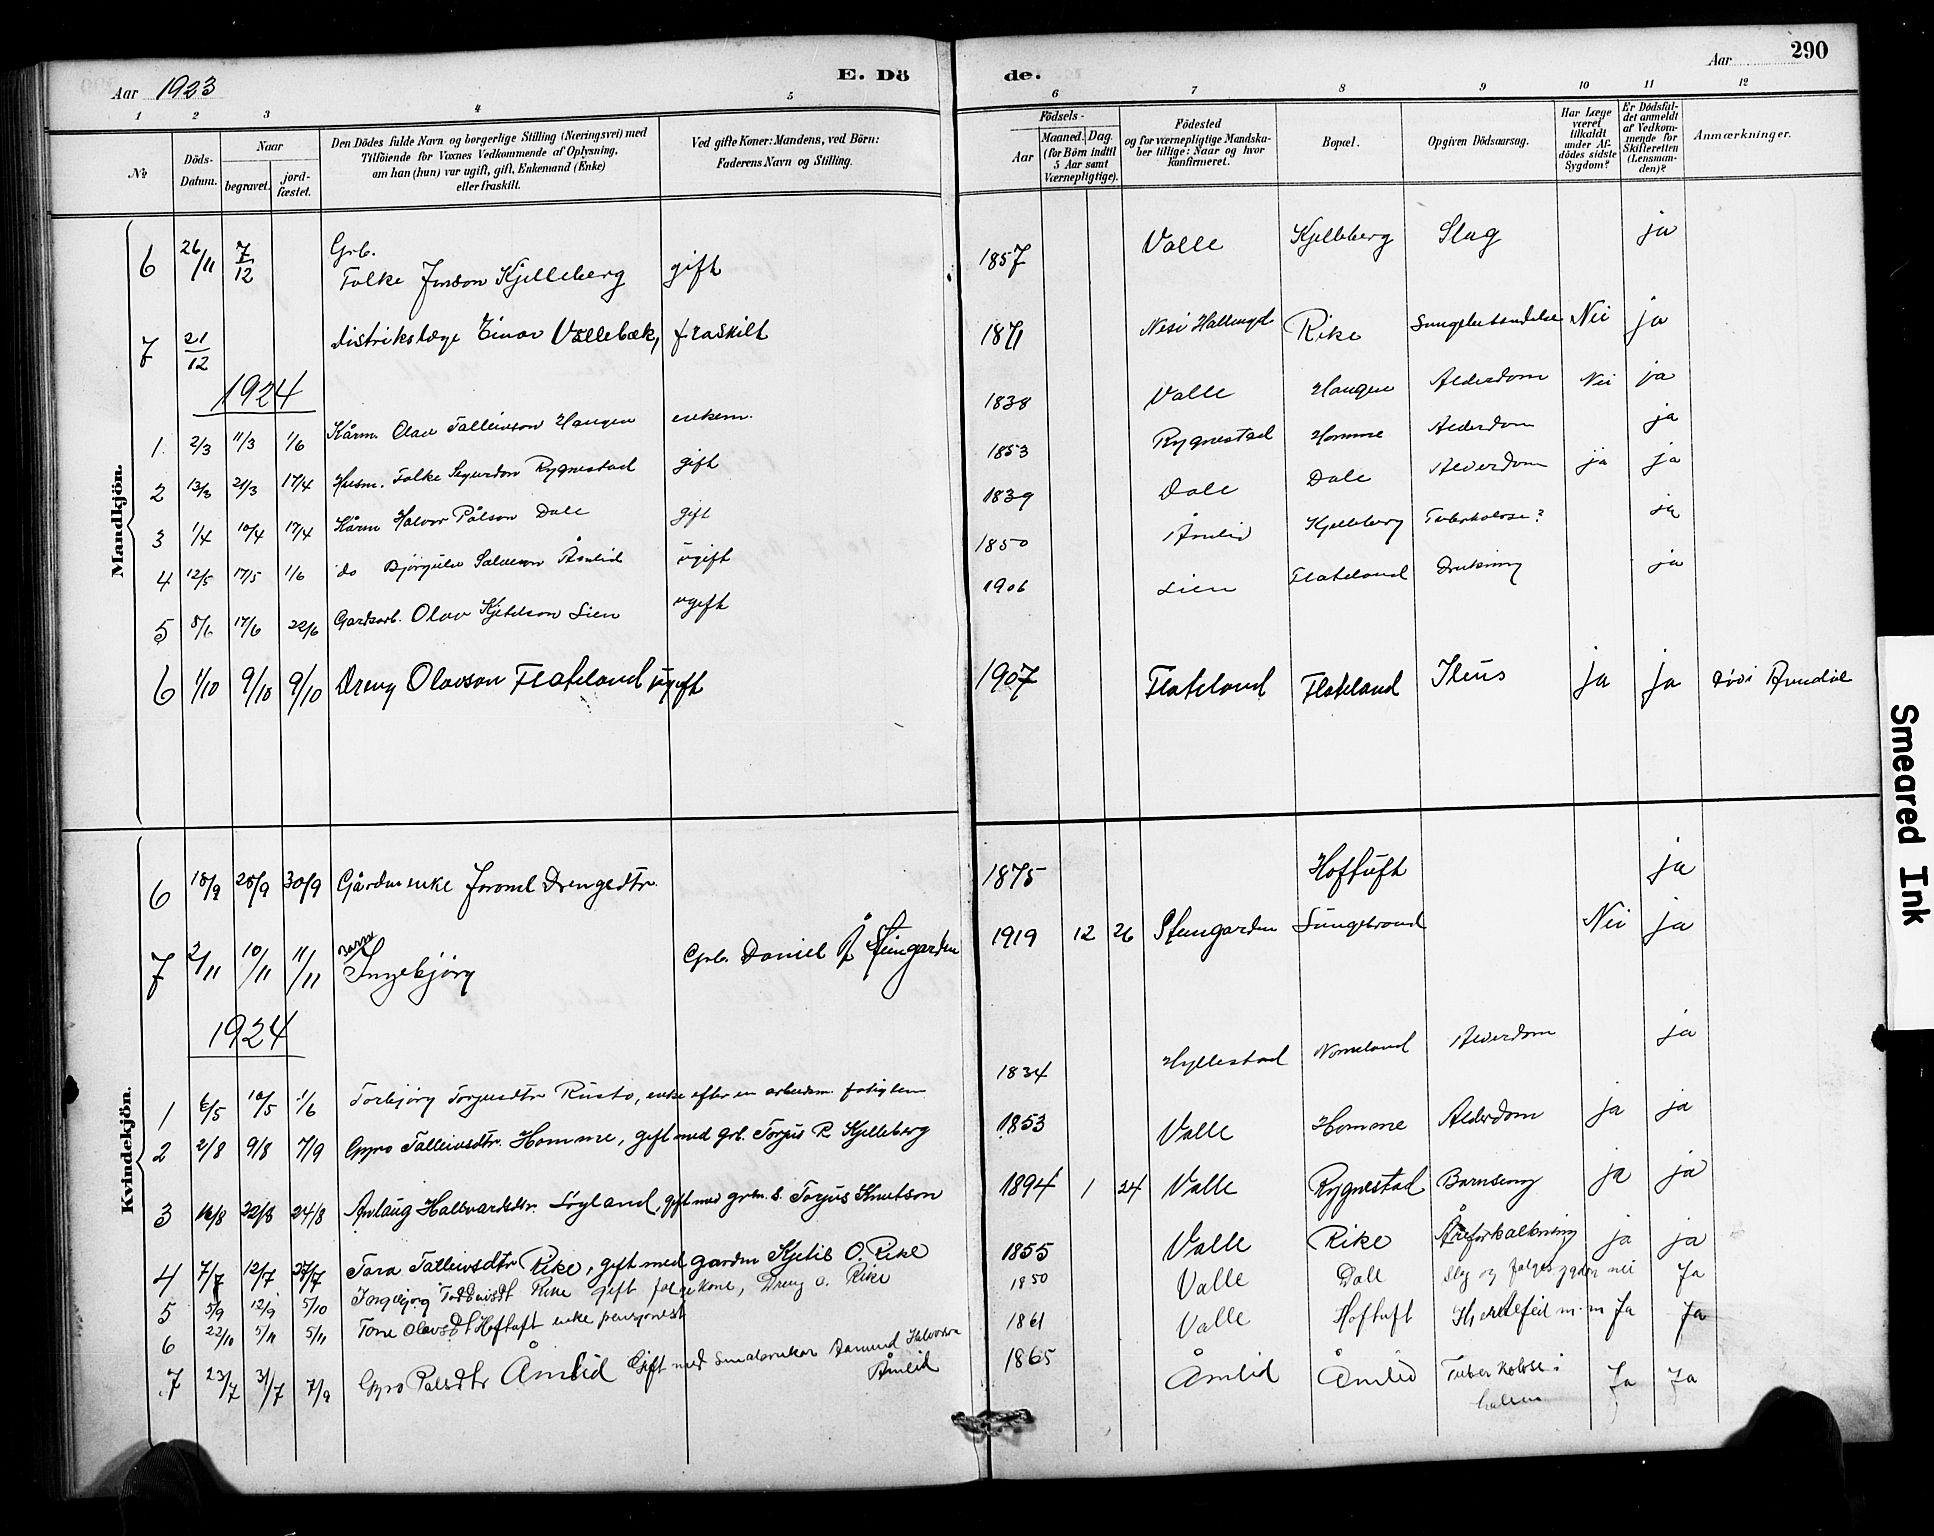 Aar 1923
E. Dö
de.
Aar
290
1 2 3 4 5 6 7 8 9 10 11 12
No
Döds-Datum.
Naar
begravet.
jord-fæstet.
Den Dödes fulde Navn og borgerlige Stilling (Næringsvei) med
Tilföiende for Voxnes Vedkommende af Oplysning,
om han (hun) var ugift, gift, Enkemand (Enke)
eller fraskilt.
Ved gifte Koner: Mandens, ved Börn:
Faderens Navn og Stilling.
Födsels-
Aar
Maaned. Dag.
(for Börn indtil
5 Aar samt
Værnepligtige).
Födested
og for værnepligtige Mandska-
ber tillige: Naar og hvor
konfirmeret.
Bopæl.
Opgiven Dödsaarsag.
Har Læge
været
tilkaldt
under Af-
dödes sidste
Sygdom?
Er Dödsfal-
det anmeldt
af Vedkom-
mende for
Skifteretten
(Lensman-
den)?
Anmærkninger.
Mandkjön.
6 26/11 7/12 Grb.
Folke Jonson Kjelleberg gift 1857 Valle Kjelleberg Slag ja
7 21/12 distriktslæge Einar Vållebæk, fraskilt 1871 Nesi Hallingd Rike Lungebetendelse Nei ja
1924
1 2/3 11/3 1/6 Kårm. Olav Talleivson Haugen enkem. 1838 Valle Haugen Alderdom Nei ja
2 13/3 21/3 17/4 Husm. Folke Sigurdson Rygnestad gift 1853 Rygnestad Homme Alderdom ja
3 1/4 10/4 17/4 Kårm Halvor Pålson Dale gift 1839 Dale Dale Alderdom ja ja
4 12/5 17/5 1/6 do Bjørgulv Salveson Åmlid ugift 1850 Åmlid Kjelleberg Tuberkolose? ja
5 8/6 17/6 22/6 Gardsarb. Olav Kjetilson Lien ugift 1906 Lien Flateland Drukning ja
6 1/10 9/10 9/10 Dreng Olavson Flateland ugift 1907 Flateland Flateland Ileus ja ja död i Arendal
Kvindekjön.
6 18/9 28/9 30/9 Gårdmenke Joronl Drengedtr. 1875 Hoftuft ja
7 2/11 10/11 11/11 barn
Ingebjörg Grb. Daniel Å Steingarden 1919 12 26 Steingarden Lungebrand Nei ja
1924
1 6/5 10/5 1/6 Torbjörg Torjusdtr Rusto, enke efter en arbeidsm. fatiglem 1834 Hyllestad Nomeland Alderdom ja
2 2/8 9/8 7/9 Gyro Talleivsdtr. Homme, gift med grb. Torjus R. Kjelleberg 1853 Valle Homme Alderdom ja ja
3 16/8 22/8 24/8 Anlaug Hallvardsdtr. Løyland, gift med grbm. s. Torjus Knutson 1894 1 24 Valle Rygnestad Barnseng ja ja
4 7/7 12/7 27/7 Tara Talleivsdtr Rike, gift med gardm Kjetil O. Rike 1855 Valle Rike Åreforkalkning ja ja
5 5/9 12/9 5/10 Ingebjörg Rike gift Dreng O. Rike 1850 Valle Dale Slag og nei Ja
6 22/10 5/11 5/11 Tone Olavsdt Hoftuft enke pensjonist 1861 Valle Hoftuft Hjertefeil m.m Ja Ja
7 23/7 31/7 7/9 Gyro Palsdtr Åmlid Gift med Smedarveikar Daniel Halvorson
Åmlid 1865 Åmlid Åmlid Tuberkolose i
halsen Ja Ja
Smeared Ink